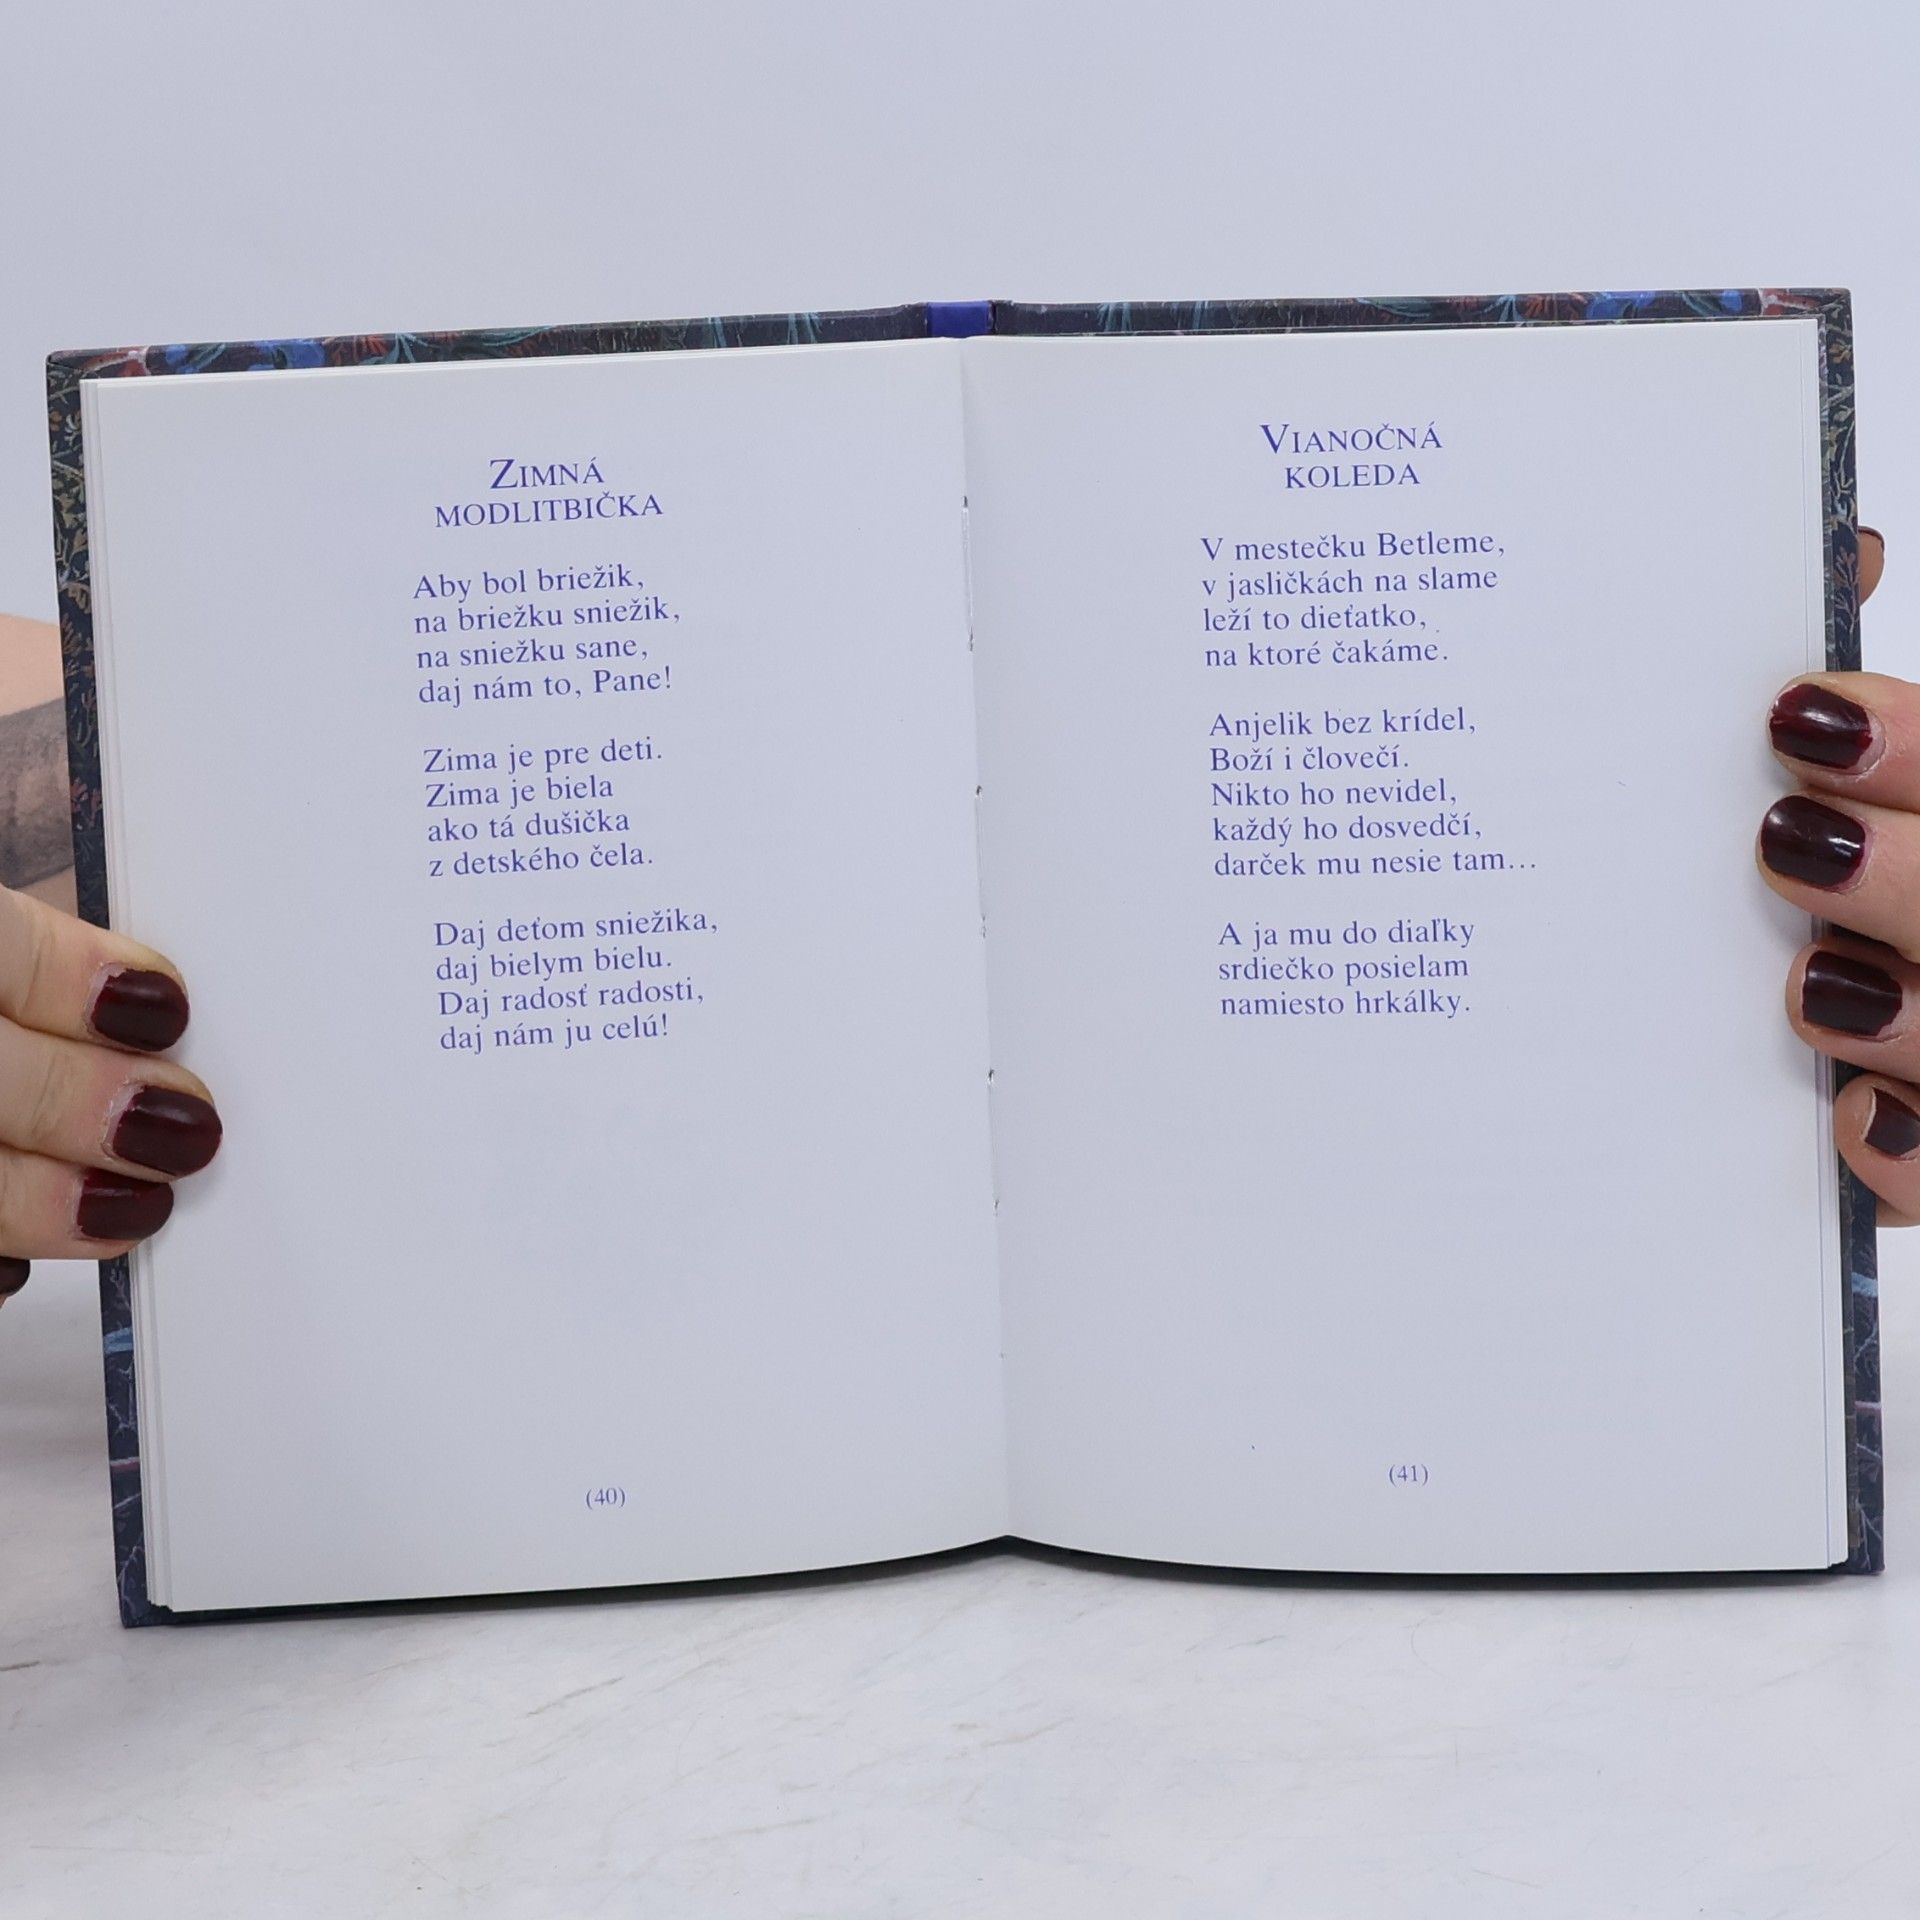 ZIMNÁ
MODLITBIČKA
Aby bol briežik,
na briežku sniežik,
na sniežku sane,
daj nám to, Pane!
Zima je pre deti.
Zima je biela
ako tá dušička
z detského čela.
Daj deťom sniežika,
daj bielym bielu.
Daj radosť radosti,
daj nám ju celú!
(40)
VIANOČNÁ
KOLEDA
V mestečku Betleme,
v jasličkách na slame
leží to dieťatko,
na ktoré čakáme.
Anjelik bez krídel,
Boží i človečí.
Nikto ho nevidel,
každý ho dosvedčí,
darček mu nesie tam...
A ja mu do diaľky
srdiečko posielam
namiesto hrkálky.
(41)